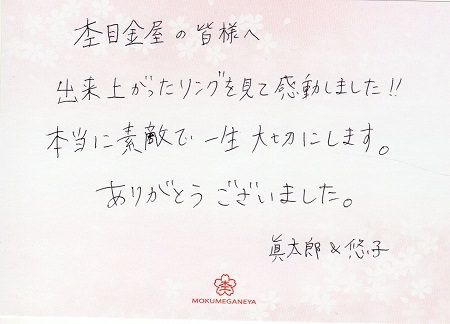 杢目金屋の皆様へ
出来上がったリングを見て感動しました!!
本当に素敵で一生大切にします。
ありがとうございました。
眞太郎 & 悠子
MOKUMEGANEYA